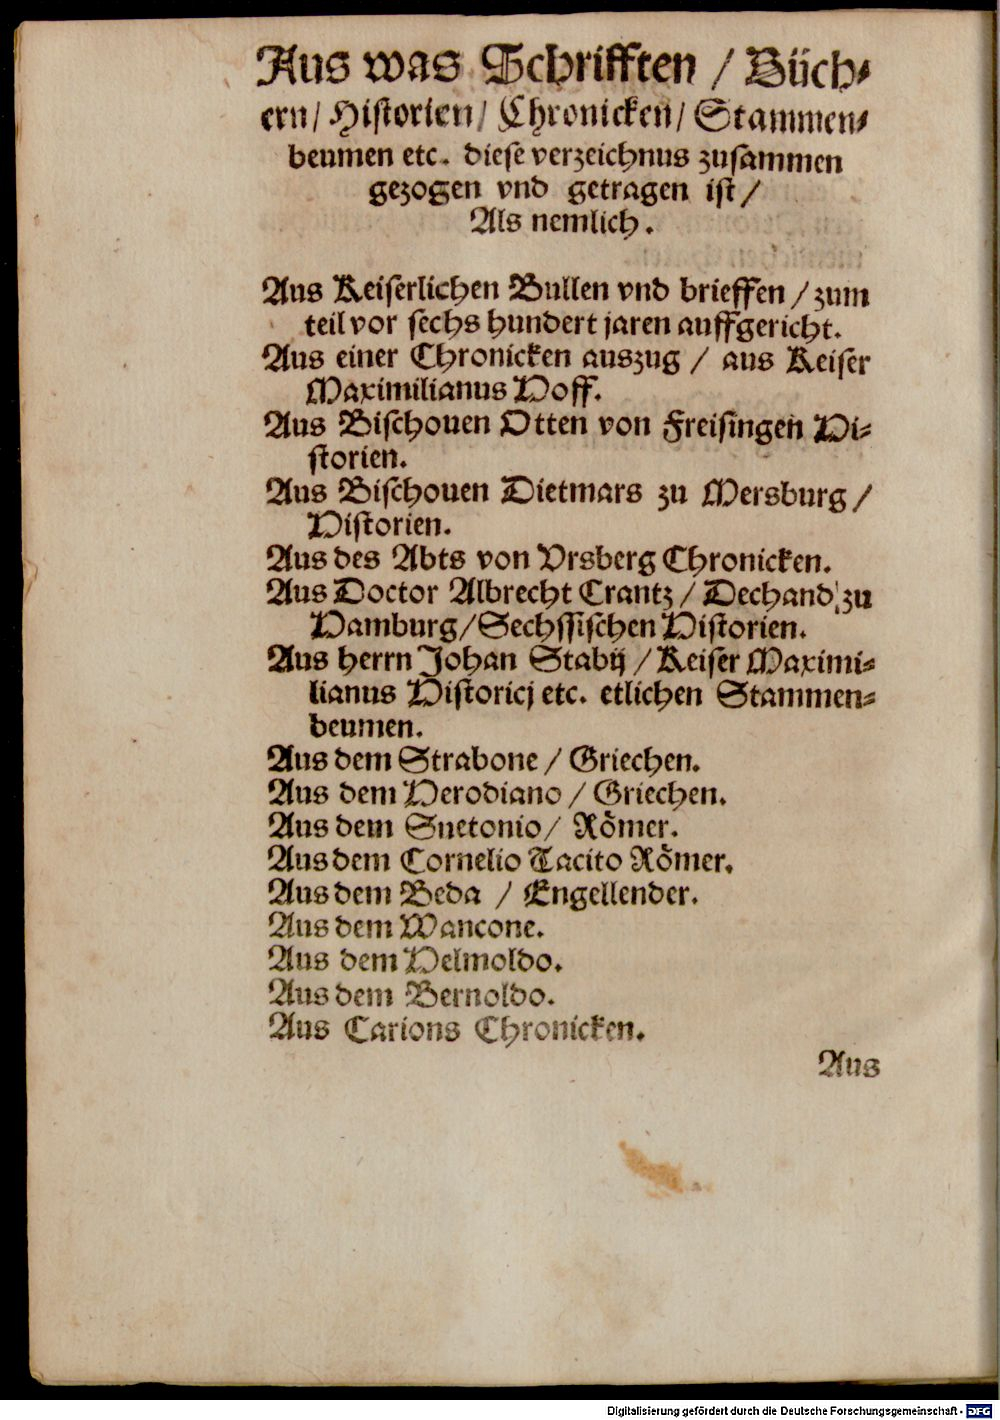 Aus was Schrifften / Büch⸗
ern / Historien / Chronicken / Stammen⸗
beumen etc. diese verzeichnus zusammen
gezogen vnd getragen ist /
Als nemlich.
Aus Keiserlichen Bullen vnd brieffen / zum
teil vor sechs hundert jaren auffgericht.
Aus einer Chronicken auszug / aus Keiser
Maximilianus Hoff.
Aus Bischouen Otten von Freisingen Hi⸗
storien.
Aus Bischouen Dietmars zu Mersburg /
Historien.
Aus des Abts von Vrsberg Chronicken.
Aus Doctor Albrecht Crantz / Dechand zu
Hamburg / Sechssischen Historien.
Aus herrn Johan Stabij / Keiser Maximi⸗
lianus Historicj etc. etlichen Stammen⸗
beumen.
Aus dem Strabone / Griechen.
Aus dem Herodiano / Griechen.
Aus dem Suetonio / Römer.
Aus dem Cornelio Tacito Römer.
Aus dem Beda / Engellender.
Aus dem Wancone.
Aus dem Helmoldo.
Aus dem Bernoldo.
Aus Carions Chronicken.
Aus
Digitalisierung gefördert durch die Deutsche Forschungsgemeinschaft - DFG